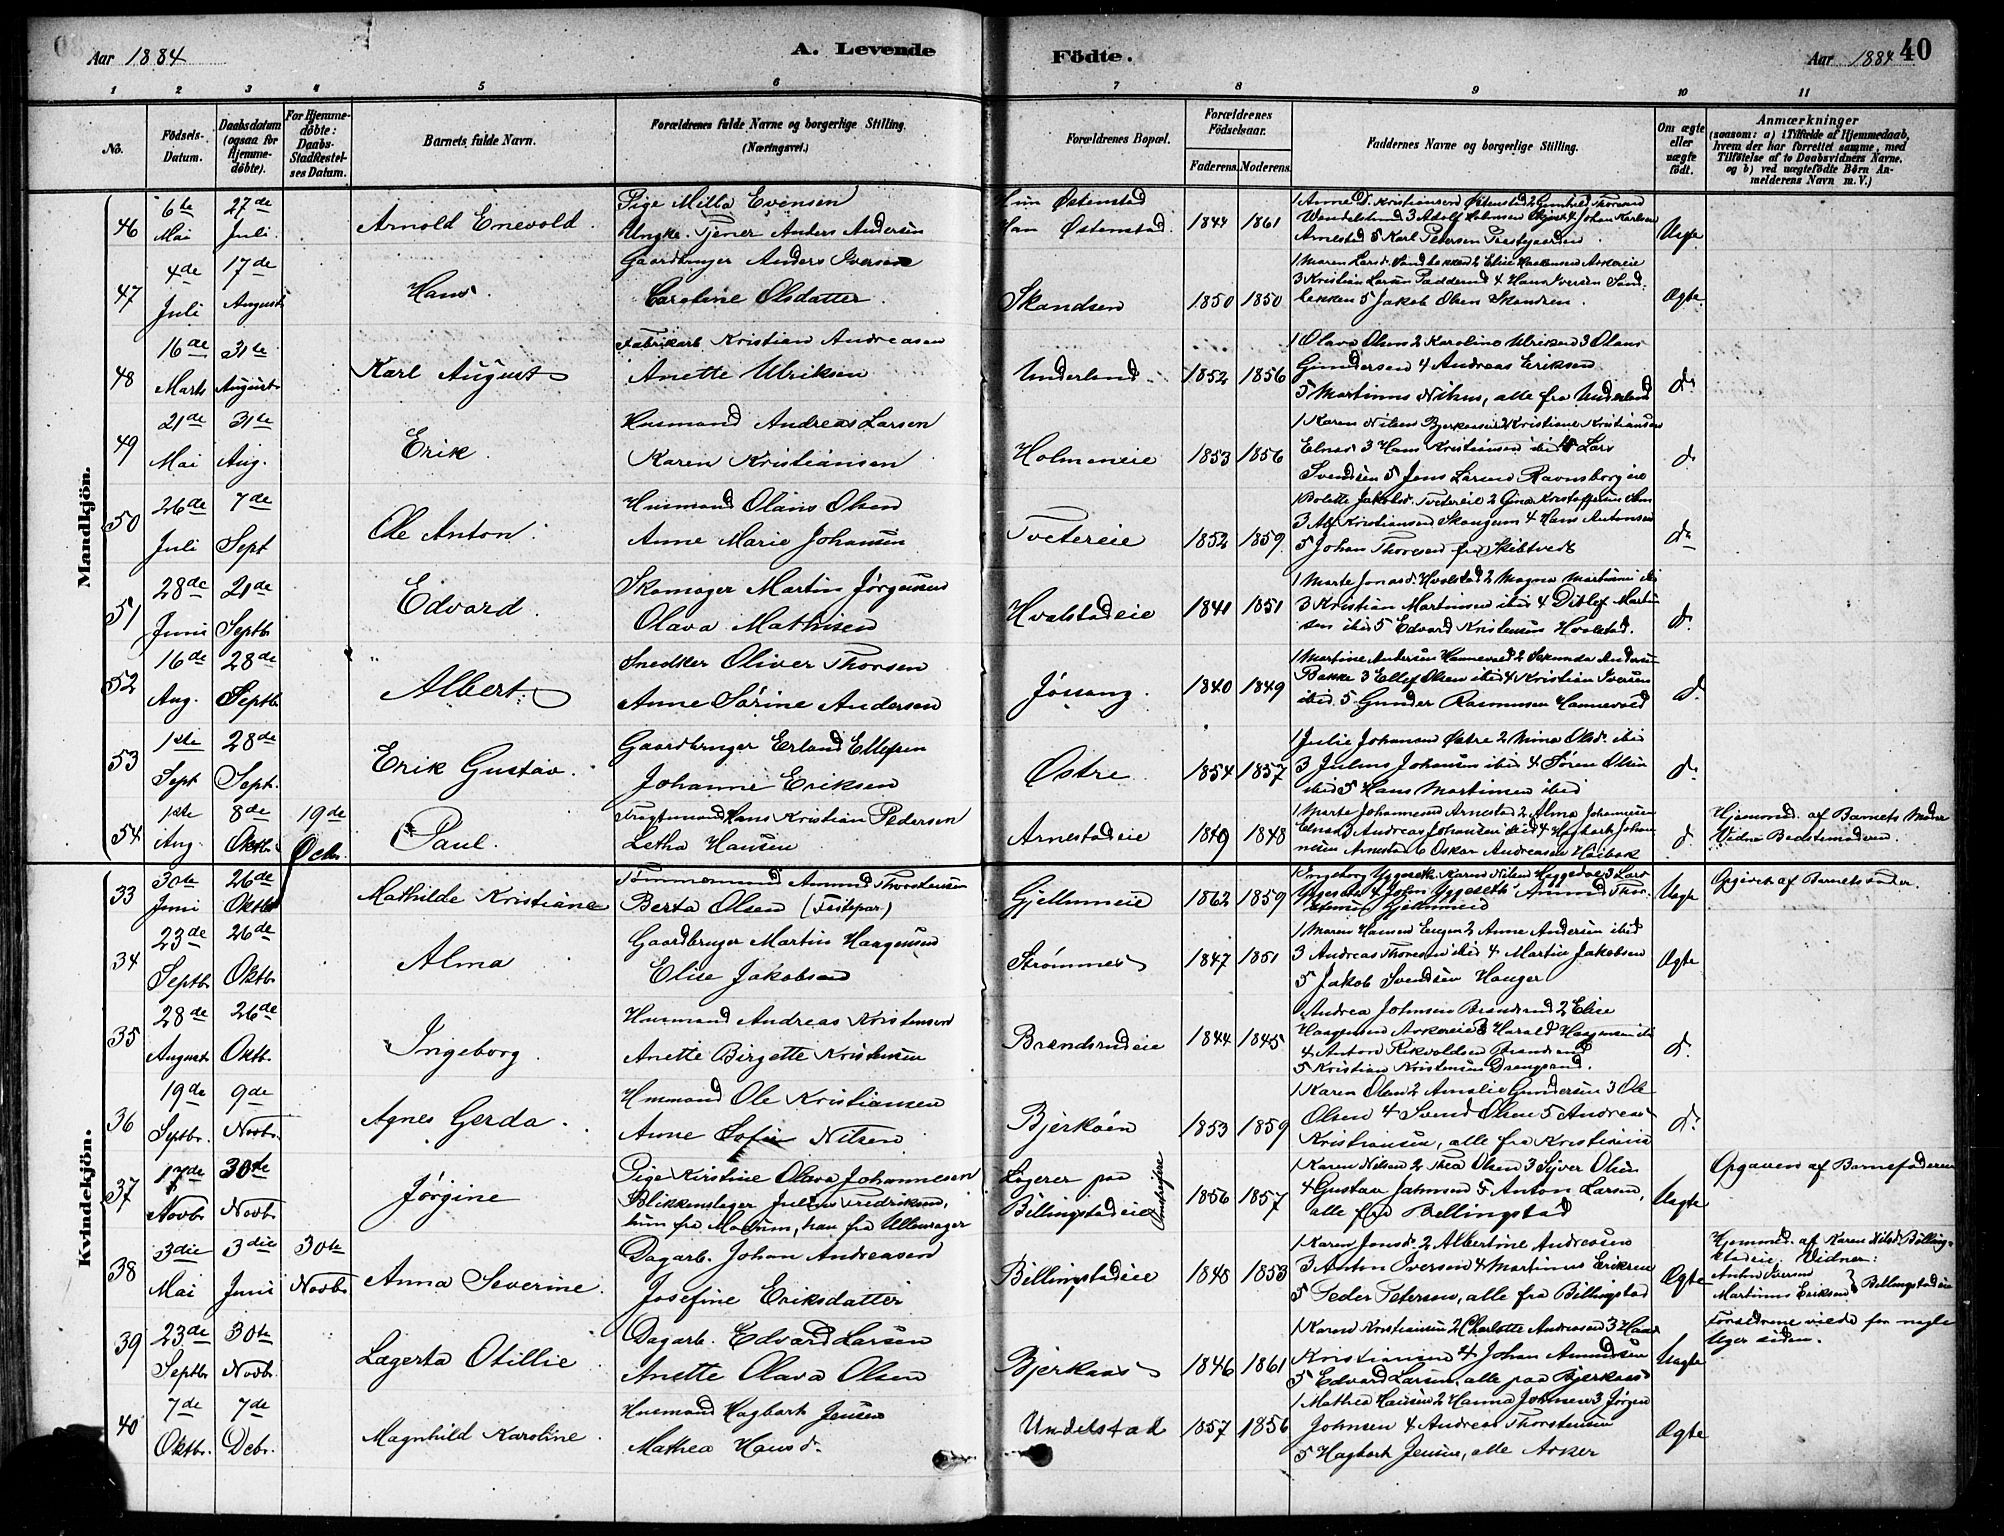 Aar 1884
A. Levende
Födte.
Aar 1884
40
1 2 3 4 5 6 7 8 9 10 11
No.
Födsels-Datum.
Daabsdatum (ogsaa for Hjemme-döbte).
For Hjemme-döbte: Daabs-Stadfæstel-ses Datum.
Barnets fulde Navn.
Forældrenes fulde Navne og borgerlige Stilling.
(Næringsvei.)
Forældrenes Bopæl.
Forældrenes Födselsaar.
Faderens. Moderens.
Faddernes Navne og borgerlige Stilling.
Om ægte eller uægte födt.
Anmærkninger
(saasom: a) i Tilfælde af Hjemmedaab, hvem der har forrettet samme, med Tilföielse af to Daabsvidners Navne, og b) ved uægtefödte Börn An-melderens Navn m. V.)
Mandkjön.
46 6te Mai 27de Juli Arnold Enevold.
Pige Milla Evensen
Ungka. Tjener Anders Andersen
Hun Østenstad
Han Østenstad 1844 1861
Arnestad 5 Karl Petersen
Uægte
47 4de Juli 17de August Hans.
Gaardbruger Anders Iversen
Caroline Olsdatter.
Skandsen 1850 1850
lekken 5 Jakob Olsen Skandsen.
Ægte
48 16de Marts 31te August Karl August
Fabrikarb Kristian Andreasen
Anette Ulriksen
Underlund 1852 1856
1 Olava Olsen 2 Karoline Ulriksen 3 Olaus
Gundersen 4 Andreas Eriksen
5 Martinus Nilsen, alle fra Underlund
do
49 21de Mai 31te Aug. Erik.
Husmand Andreas Larsen
Karen Kristiansen
Holmeneie 1853 1856
1 Karen Nilsen Bjerkaas 2 Kristiane Kristiansen
Elnas 3 Hans Kristiansen ibid 4 Lars
Svendsen 5 Jens Larsen Ravnsborgeie
do
50 26de Juli 7de Sept Ole Anton.
Husmand Olaus Olsen
Anne Marie Johansen
Tvetereie 1852 1859
1 Bolette Jakobsd. Tvetereie 2 Gina Kristoffersen
3 Alf Kristiansen Skaugum 4 Hans Antonsen
5 Johan Thoresen fra Skibtvedt
do
51 28de Juni 21de Septb. Edvard.
Skomager Martin Jørgensen
Olava Mathisen
Hvalstadeie 1841 1851
1 Marte Jonasd. Hvalstad 2 Magna Martinsen ibid
3 Kristian Martinsen ibid 4 Ditlef Martin
sen ibid 5 Edvard Kristensen Hvalstad.
do
52 16de Aug. 28de Septb. Albert.
Snedker Oliver Thorsen
Anne Sørine Andersen
Jøssang. 1840 1849
1 Martine Andersen Hannevold 2 Sekunda Andersen
Bakke 3 Ellef Olsen ibid 4 Kristian Iversen
ibid 5 Gunder Rasmussen Hannevold
do
53 1ste Sept 28de Sept. Erik Gustav.
Gaardbruger Erland Ellefsen
Johanne Eriksen
Østre 1854 1857
1 Julie Johansen Østre 2 Nina Olsd. ibid
3 Julius Johansen ibid 4 Søren Olsen
ibid 5 Hans Martinsen ibid
do
54 1ste Aug. 8de Oktb. 19de Octb. Paul.
Fragtemand Hans Kristian Pedersen
Letha Hansen
Arnestadeie 1849 1848
1 Marte Johannesen Arnestad 2 Alma Johannesen
Elnas 3 Andreas Johansen ibid 4 Hagbart Johan
nesen Arnestad 6 Oskar Andreasen
do
Hjemmed. af Barnets Moder
Vidne Bedstemoderen.
Kvindekjön.
33 30te Juni 26de Oktb. Mathilde Kristiane
Tømmermand Amund Thorstensen
Berta Olsen (Fritspar)
Gjellumeie 1862 1859
Uægte
Opgivet af Barnets Fader.
34 23de Septb. 26de Oktb. Alma
Gaardbruger Martin Haagensen
Elise Jakobsen
Strømmen 1847 1851
1 Maren Hansen Engen 2 Anne Andersen ibid
3 Andreas Thoresen ibid 4 Martin Jakobsen
5 Jakob Svendsen Hauger
Ægte
35 28de August 26de Oktb. Ingeborg.
Husmand Andreas Kristensen
Anette Birgette Kristensen
Brendsrudeie 1844 1845
1 Andrea Johnsen Brendsrud 2 Elise
Haagensen Askereie 3 Harald Haagensen ibid
4 Anton Rikvoldsen Brendsrud
5 Kristian Kristensen Drengsrud.
do
36 19de Septbr. 9de Novbr. Agnes Gerda.
Husmand Ole Kristiansen
Anne Sofie Nilsen
Bjerkaasen 1853 1859
1 Karen Olsen 2 Amalie Gundersen 3 Ole
Olsen 4 Svend Olsen 5 Andreas
Kristiansen, alle fra Kristiania
do
37 17de Novb. 30te Novb. Jørgine
Pige Kirstine Olava Johannesen
Blikkenslager Julius Fredriksen,
hun fra Modum, han fra Ullensager
Logerer paa
Billingstadeie 1856 1857
1 Karen Nilsen 2 Thea Olsen 3 Syver Olsen
4 Gustav Johnsen 5 Anton Larsen,
alle fra Billingstad
Uægte
Opgaven af Barnefaderen
38 3die Mai 3die Juni 30te Novb. Anna Severine.
Dagarb. Johan Andreasen
Josefine Eriksdatter
Billingstadeie 1848 1853
1 Karen Jonsd. 2 Albertine Andreasen
3 Anton Iversen 4 Martinus Eriksen
5 Peder Petersen, alle fra Billingstad
Ægte
Hjemmed. af Karen Nilsd. Billing-
stadeie, Vidner:
Anton Iversen
Martinus Eriksen } Billingstadeie
39 23de Septb. 30te Novb. Lagerta Otillie
Dagarb. Edvard Larsen
Anette Olava Olsen
Bjerkaas 1846 1861
1 Karen Kristiansen 2 Charlotte Andreasen 3 Hans
Kristiansen 4 Johan Amundsen
5 Edvard Larsen, alle paa Bjerkaas
Uægte
Forældrene viede for nogle
Uger siden.
40 7de Oktb. 7de Debr. Magnhild Karoline.
Husmand Hagbart Jensen
Mathea Hansd.
Undelstad 1857 1856
1 Mathea Hansen 2 Hanna Johnsen 3 Jørgen
Johnsen 4 Andreas Thorstensen
5 Hagbart Jensen, alle Asker
Ægte